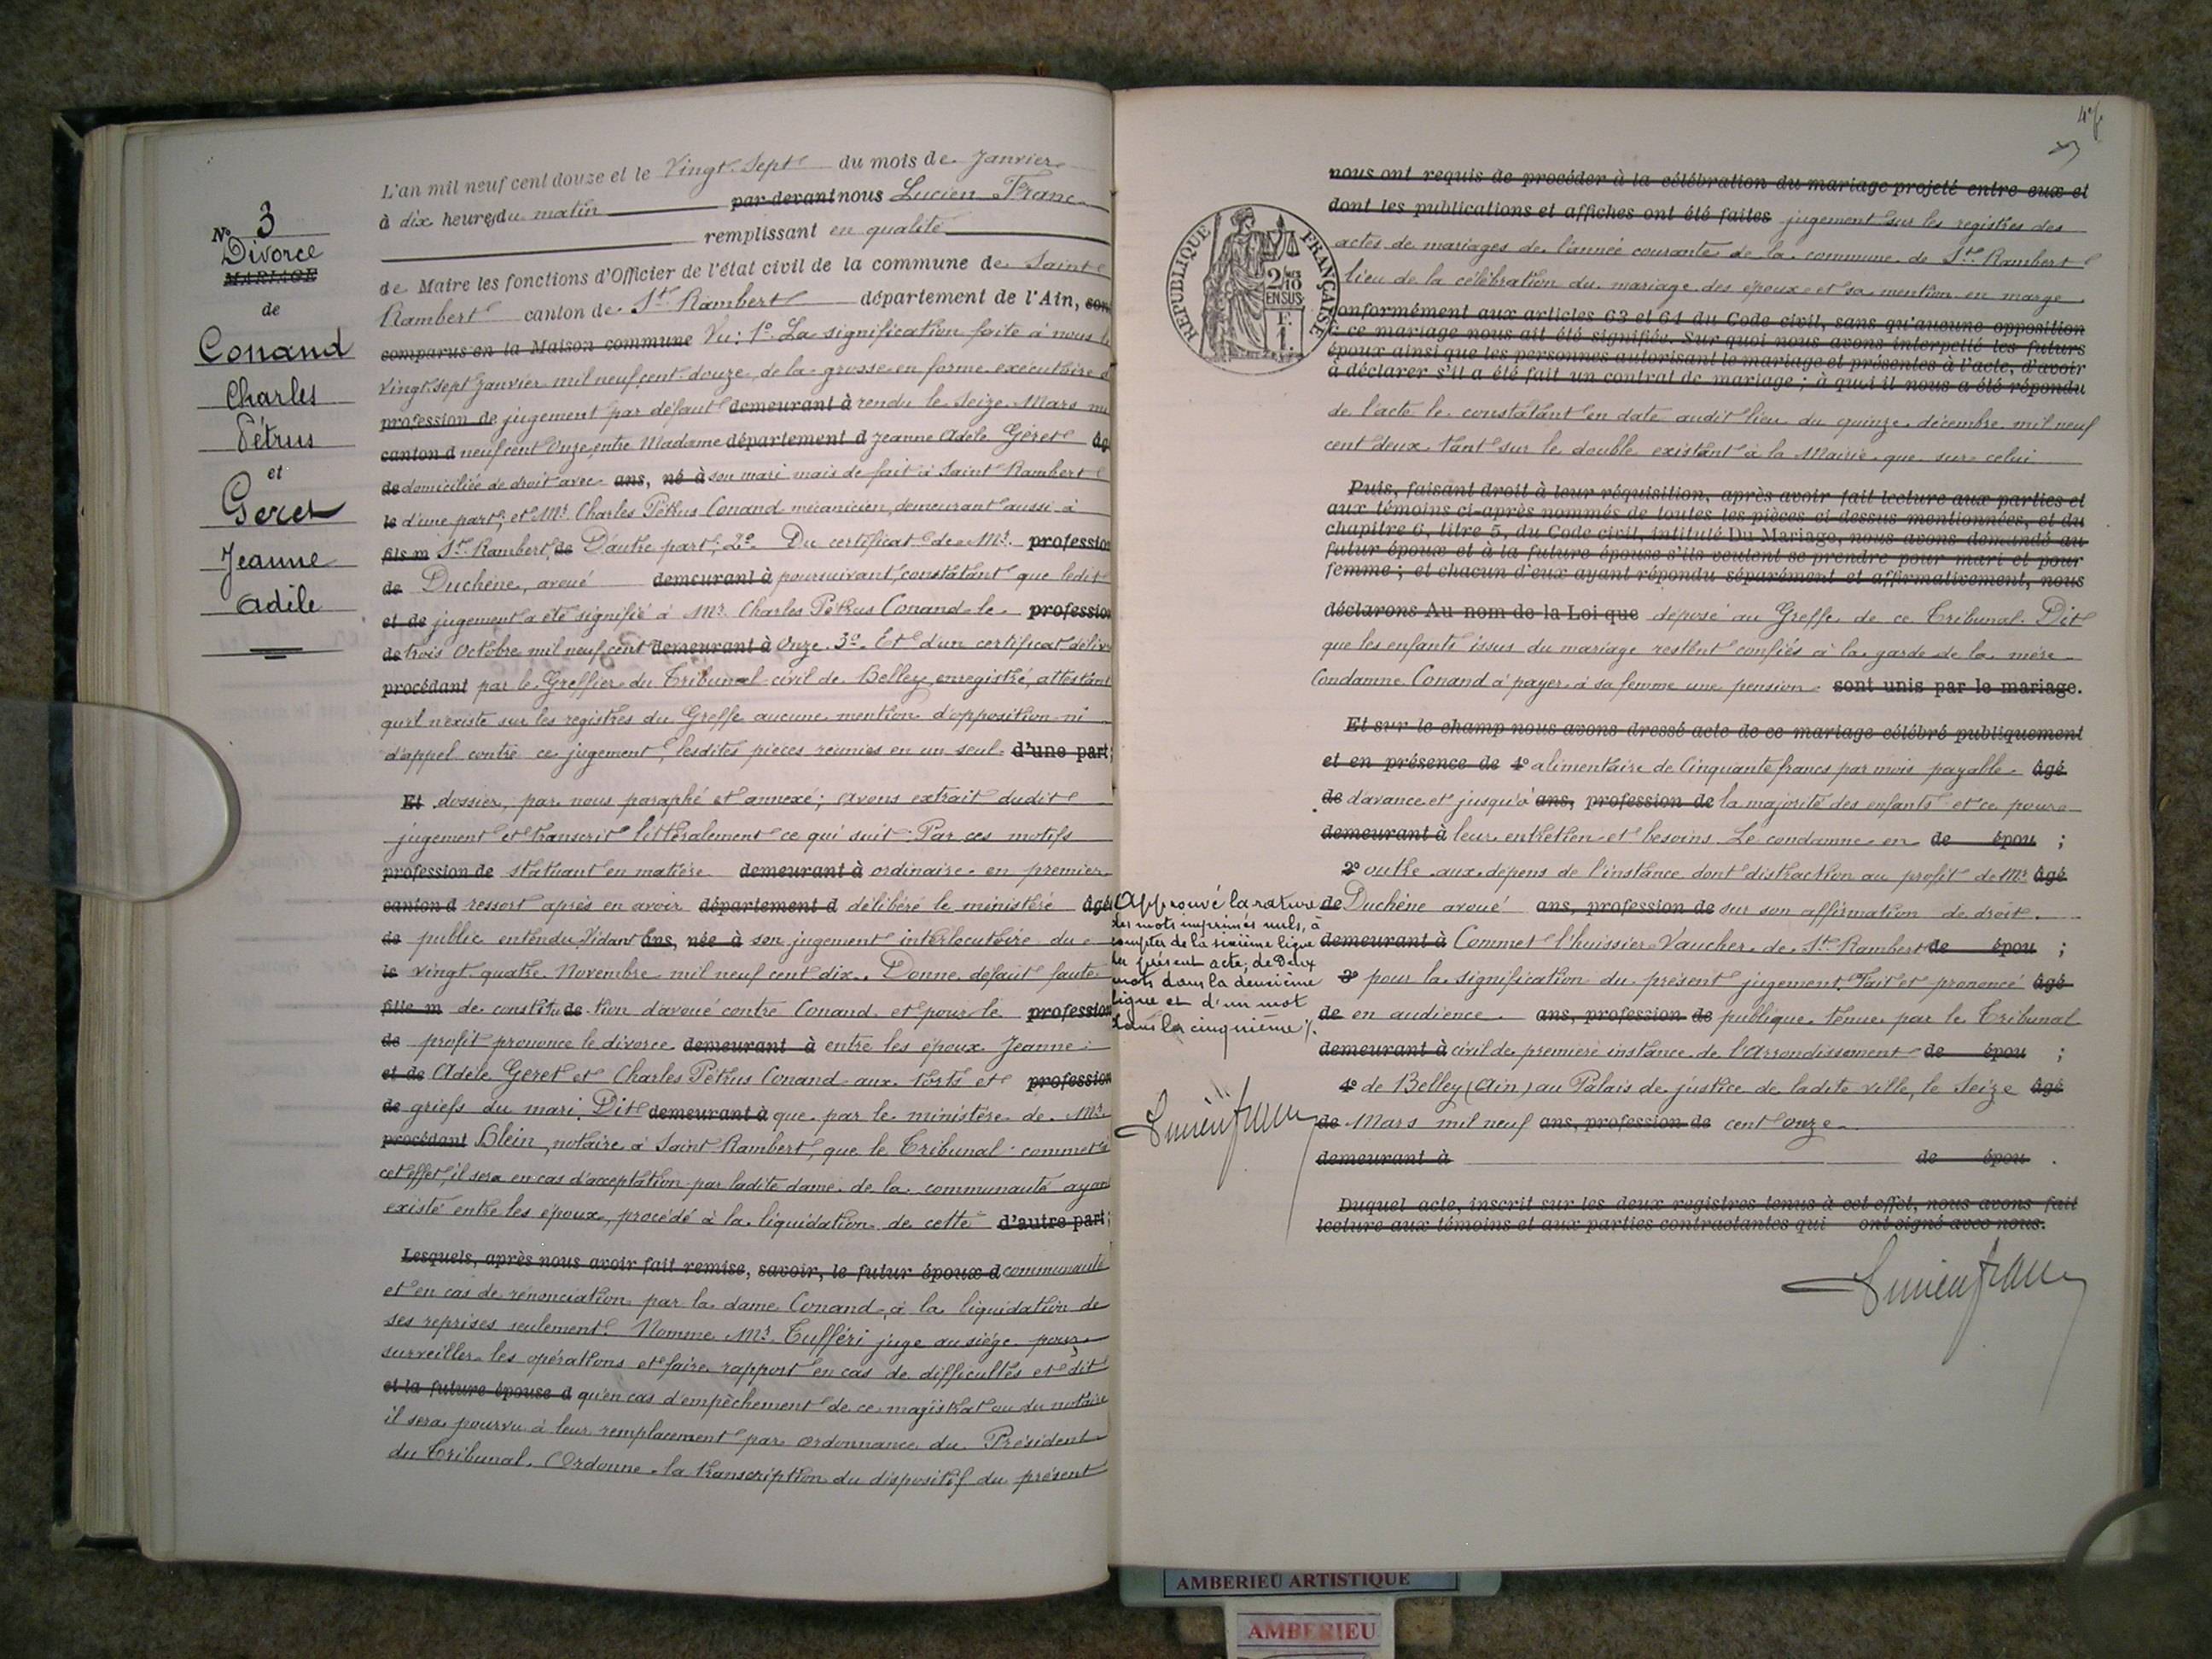 N° 3
Divorce
MARIAGE
de
Conand
Charles
Pétrus
et
Geret
Jeanne
Adèle
L'an mil neuf cent douze et le Vingt Sept du mois de Janvier
à dix heures du matin par devant nous Lucien Franc
remplissant en qualité
de Maire les fonctions d'Officier de l'état civil de la commune de Saint
Rambert canton de St Rambert département de l'Ain, son
comparus en la Maison commune Vu: 1° La signification faite à nous le
vingt sept Janvier mil neuf cent douze, de la grosse en forme exécutoire d
profession de jugement par défaut demeurant à rendu le Seize Mars mil
canton d neuf cent Onze, entre Madame département d Jeanne Adèle Geret âg
de domiciliée de droit avec ans, né à son mari mais de fait à Saint Rambert
le d'une part; et Mr. Charles Pétrus Conand mécanicien, demeurant aussi à
fils m St. Rambert, de D'autre part; 2° Du certificat de Mr. profession
de Duchêne, avoué demeurant à poursuivant, constatant que ledit
et de jugement a été signifié à Mr. Charles Pétrus Conand le profession
de trois Octobre mil neuf cent demeurant à Onze. 3°. Et d'un certificat délivré
procédant par le Greffier du Tribunal civil de Belley enregistré, attestant
qu'il n'existe sur les registres du Greffe aucune mention d'opposition ni
d'appel contre ce jugement, lesdites pièces réunies en un seul d'une part;
Et dossier, par nous paraphé et annexé; avons extrait dudit
jugement et transcrit littéralement ce qui suit: Par ces motifs
profession de statuant en matière demeurant à ordinaire en premier
canton d ressort après en avoir département d délibéré le ministère âgé
de public entendu, Vidant ans, née à son jugement interlocutoire du
le vingt quatre Novembre mil neuf cent dix. Donne défaut faute
fille m de constitu de tion d'avoué contre Conand et pour le profession
de profit prononce le divorce demeurant à entre les époux Jeanne
et de Adèle Geret et Charles Pétrus Conand aux torts et profession
de griefs du mari, Dit demeurant à que par le ministère de Mr.
procédant Blein, notaire à Saint Rambert, que le Tribunal commet à
cet effet, il sera en cas d'acceptation par ladite dame de la communauté ayant
existé entre les époux, procédé à la liquidation de cette d'autre part;
Lesquels, après nous avoir fait remise, savoir, le futur époux d communauté
et en cas de renonciation par la dame Conand à la liquidation de
ses reprises seulement. Nomme Mr. Tufféri juge au siège pour
surveiller les opérations et faire rapport en cas de difficultés et dit
et la future épouse d qu'en cas d'empêchement de ce magistrat ou du notaire
il sera pourvu à leur remplacement par ordonnance du Président
du Tribunal. Ordonne la transcription du dispositif du présent
RÉPUBLIQUE FRANÇAISE
2/10 EN SUS
F. 1.
nous ont requis de procéder à la célébration du mariage projeté entre eux et
dont les publications et affiches ont été faites jugement sur les registres des
actes de mariages de l'année courante de la commune de St. Rambert
lieu de la célébration du mariage des époux et sa mention en marge
conformément aux articles 63 et 64 du Code civil, sans qu'aucune opposition
à ce mariage nous ait été signifiée. Sur quoi nous avons interpellé les futurs
époux ainsi que les personnes autorisant le mariage et présentes à l'acte, d'avoir
à déclarer s'il a été fait un contrat de mariage; à quoi il nous a été répondu
de l'acte le constatant en date audit lieu du quinze décembre mil neuf
cent deux tant sur le double existant à la Mairie que sur celui
Puis, faisant droit à leur réquisition, après avoir fait lecture aux parties et
aux témoins ci-après nommés de toutes les pièces ci-dessus mentionnées, et du
chapitre 6, titre 5, du Code civil, intitulé Du Mariage, nous avons demandé au
futur époux et à la future épouse s'ils veulent se prendre pour mari et pour
femme; et chacun d'eux ayant répondu séparément et affirmativement, nous
déclarons Au nom de la Loi que déposé au Greffe de ce Tribunal. Dit
que les enfants issus du mariage restent confiés à la garde de la mère
Condamne Conand à payer à sa femme une pension sont unis par le mariage.
Et sur le champ nous avons dressé acte de ce mariage célébré publiquement
et en présence de 1° alimentaire de Cinquante francs par mois payable âgé
de d'avance et jusqu'à ans, profession de la majorité des enfants et ce pour
demeurant à leur entretien et besoins. Le condamne en de épou ;
2° outre aux dépens de l'instance dont distraction au profit de Mr. âgé
de Duchêne avoué ans, profession de sur son affirmation de droit.
demeurant à Commet l'huissier Vaucher de St. Rambert de épou ;
3° pour la signification du présent jugement. Fait et prononcé âgé
de en audience ans, profession de publique tenue par le Tribunal
demeurant à civil de première instance de l'Arrondissement de épou ;
4° de Belley (Ain) au Palais de justice de ladite ville, le Seize âgé
de Mars mil neuf ans, profession de cent onze
demeurant à de épou .
Duquel acte, inscrit sur les deux registres tenus à cet effet, nous avons fait
lecture aux témoins et aux parties contractantes qui ont signé avec nous.
Lucien Franc
Approuvé la rature
des mots imprimés nuls, à
compter de la sixième ligne
du présent acte; de Deux
mots dans la deuxième
ligne et d'un mot
dans la cinquième
Lucien Franc
AMBERIEU ARTISTIQUE
AMBERIEU